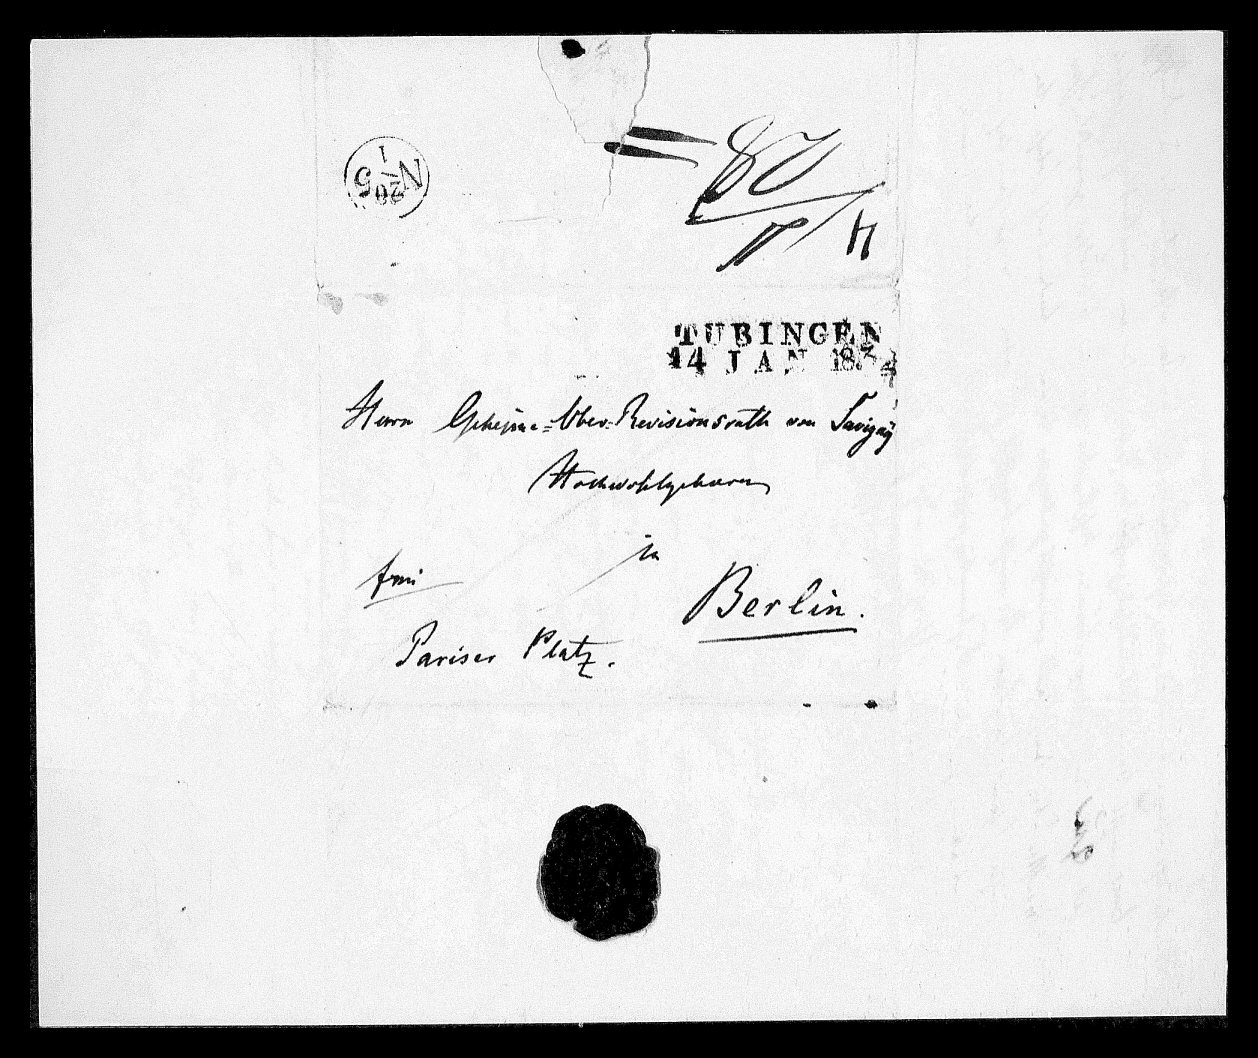 N 20/1 5
TUBINGEN
14 JAN 183
Herrn Geheime-Ober-Revisionsrath von Savigny
Hochwohlgeboren
in
frei
Berlin.
Pariser Platz.